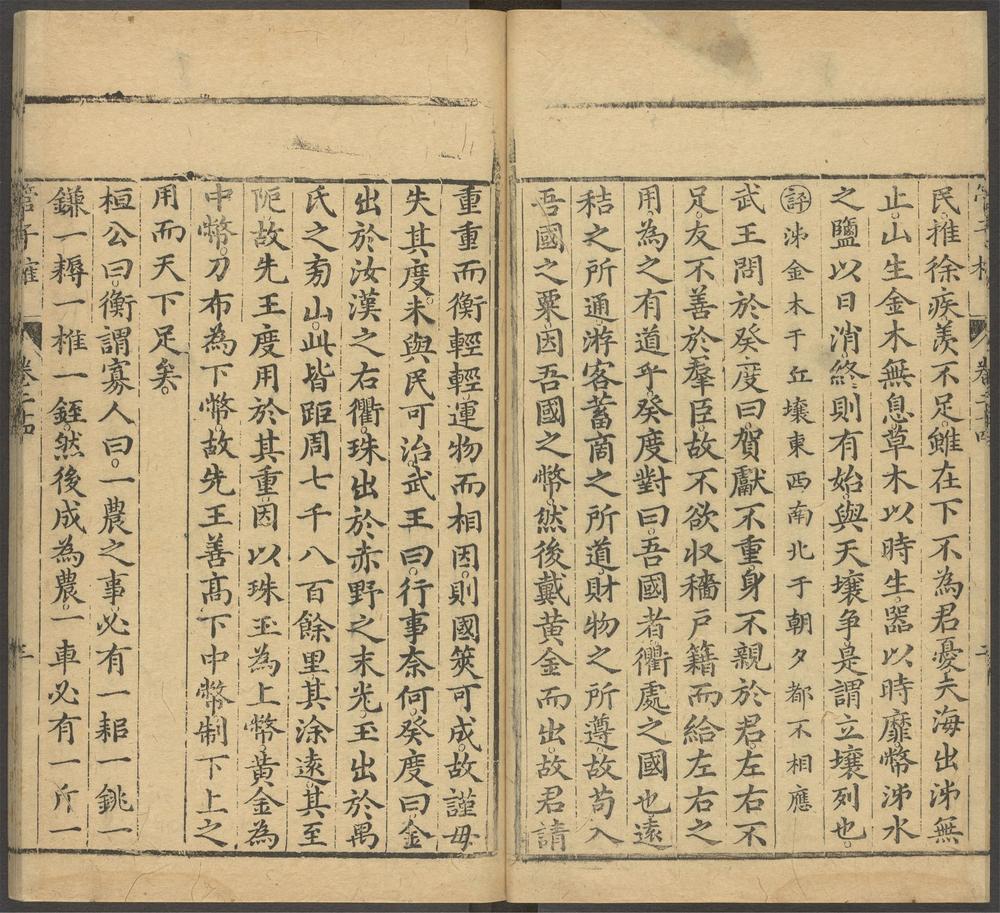 民推徐疾羨不足雖在下不為君憂夫海出沸無
止山生金木無息草木以時生器以時靡幣沸水
之鹽以日消終則有始與天壤争是謂立壤列也
評沸金木于丘壤東西南北于朝夕都不相應
武王問於癸度曰賀獻不重身不親於君左右不
足友不善於羣臣故不欲収穡戶籍而給左右之
用為之有道乎癸度對曰吾國者衢處之國也遠
秸之所通游客蓄商之所道財物之所遵故苟入
吾國之粟因吾國之幣然後戴黄金而出故君請
重重而衡輕輕運物而相因則國筴可成故謹毋
失其度未與民可治武王曰行事奈何癸度曰金
出於汝漢之右衢珠出於赤野之末光玉出於禺
氏之旁山此皆距周七千八百餘里其涂遠其至
阨故先王度用於其重因以珠玉為上幣黄金為
中幣刀布為下幣故先王善高下中幣制下上之
用而天下足矣
桓公曰衡謂寡人曰一農之事必有一耜一銚一
鎌一耨一椎一銍然後成為農一車必有一斤一
管子榷 卷二十四